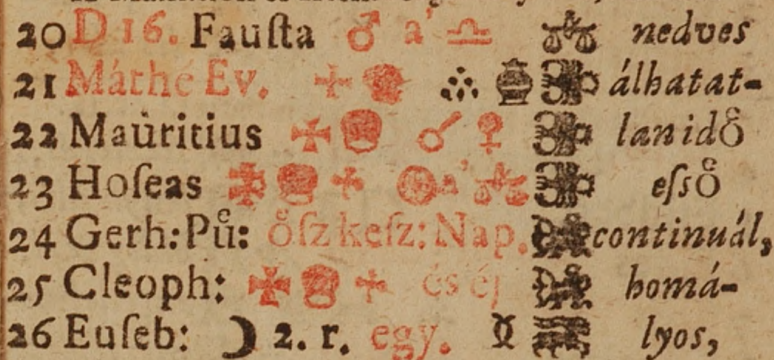 20 D 16. Fauſta ♂ a' ♎ ♎ nedves
21 Máthé Ev. álhatat-
22 Mauritius ☌ ♀ lan idő
23 Hoſeas a' ♎ eſső
24 Gerh: Pů: oͤſz keſz: Nap. continuál,
25 Cleoph: és éj homá-
26 Euſeb: ☽ 2. r. egy. lyos,